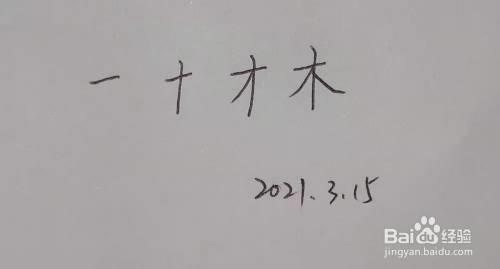 一 十 才 木
2021.3.15
Baidu经验
jingyan.baidu.com